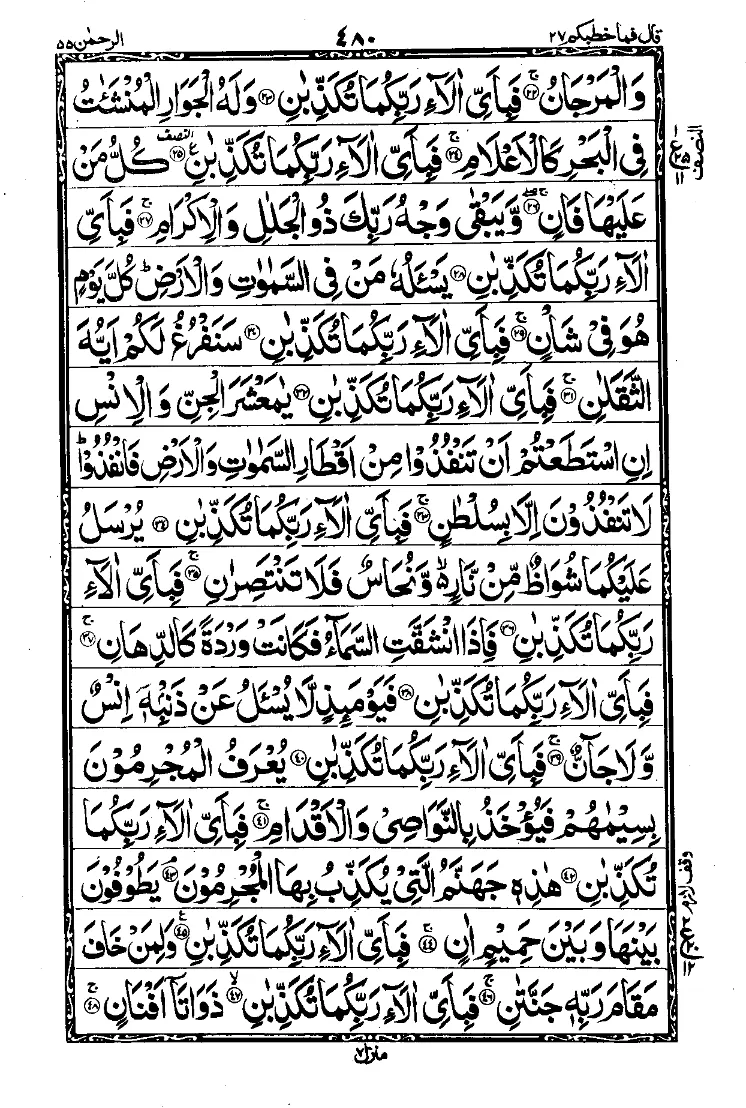 قال فما خطبكم ٢٧
٤٨٠
الرحمٰن ٥٥
وَالْمَرْجَانُ ۚ﴿٢٢﴾ فَبِاَىِّ اٰلَآءِ رَبِّكُمَا تُكَذِّبٰنِ ﴿٢٣﴾ وَلَهُ الْجَوَارِ الْمُنْشَئٰتُ
فِى الْبَحْرِ كَالْاَعْلَامِ ۚ﴿٢٤﴾ فَبِاَىِّ اٰلَآءِ رَبِّكُمَا تُكَذِّبٰنِ ﴿٢٥﴾ ع النصف كُلُّ مَنْ
عَلَيْهَا فَانٍ ۚۖ﴿٢٦﴾ وَّيَبْقٰى وَجْهُ رَبِّكَ ذُو الْجَلٰلِ وَالْاِكْرَامِ ۚ﴿٢٧﴾ فَبِاَىِّ
اٰلَآءِ رَبِّكُمَا تُكَذِّبٰنِ ﴿٢٨﴾ يَسْئَلُهٗ مَنْ فِى السَّمٰوٰتِ وَالْاَرْضِ ؕ كُلَّ يَوْمٍ
هُوَ فِىْ شَاْنٍ ۚ﴿٢٩﴾ فَبِاَىِّ اٰلَآءِ رَبِّكُمَا تُكَذِّبٰنِ ﴿٣٠﴾ سَنَفْرُغُ لَكُمْ اَيُّهَ
الثَّقَلٰنِ ۚ﴿٣١﴾ فَبِاَىِّ اٰلَآءِ رَبِّكُمَا تُكَذِّبٰنِ ﴿٣٢﴾ يٰمَعْشَرَ الْجِنِّ وَالْاِنْسِ
اِنِ اسْتَطَعْتُمْ اَنْ تَنْفُذُوْا مِنْ اَقْطَارِ السَّمٰوٰتِ وَالْاَرْضِ فَانْفُذُوْا ؕ
لَا تَنْفُذُوْنَ اِلَّا بِسُلْطٰنٍ ۚ﴿٣٣﴾ فَبِاَىِّ اٰلَآءِ رَبِّكُمَا تُكَذِّبٰنِ ﴿٣٤﴾ يُرْسَلُ
عَلَيْكُمَا شُوَاظٌ مِّنْ نَّارٍ ۙ وَّنُحَاسٌ فَلَا تَنْتَصِرٰنِ ۚ﴿٣٥﴾ فَبِاَىِّ اٰلَآءِ
رَبِّكُمَا تُكَذِّبٰنِ ﴿٣٦﴾ فَاِذَا انْشَقَّتِ السَّمَآءُ فَكَانَتْ وَرْدَةً كَالدِّهَانِ ۚ﴿٣٧﴾
فَبِاَىِّ اٰلَآءِ رَبِّكُمَا تُكَذِّبٰنِ ﴿٣٨﴾ فَيَوْمَئِذٍ لَّا يُسْئَلُ عَنْ ذَنْۢبِهٖۤ اِنْسٌ
وَّلَا جَآنٌّ ۚ﴿٣٩﴾ فَبِاَىِّ اٰلَآءِ رَبِّكُمَا تُكَذِّبٰنِ ﴿٤٠﴾ يُعْرَفُ الْمُجْرِمُوْنَ
بِسِيْمٰهُمْ فَيُؤْخَذُ بِالنَّوَاصِىْ وَالْاَقْدَامِ ۚ﴿٤١﴾ فَبِاَىِّ اٰلَآءِ رَبِّكُمَا
تُكَذِّبٰنِ ﴿٤٢﴾ هٰذِهٖ جَهَنَّمُ الَّتِىْ يُكَذِّبُ بِهَا الْمُجْرِمُوْنَ ۘ﴿٤٣﴾ يَطُوْفُوْنَ
بَيْنَهَا وَبَيْنَ حَمِيْمٍ اٰنٍ ۚ﴿٤٤﴾ فَبِاَىِّ اٰلَآءِ رَبِّكُمَا تُكَذِّبٰنِ ﴿٤٥﴾ ع وَلِمَنْ خَافَ
مَقَامَ رَبِّهٖ جَنَّتٰنِ ۚ﴿٤٦﴾ فَبِاَىِّ اٰلَآءِ رَبِّكُمَا تُكَذِّبٰنِ ۙ﴿٤٧﴾ ذَوَاتَاۤ اَفْنَانٍ ۚ﴿٤٨﴾
النصف
وقف لازم
منزل ٧